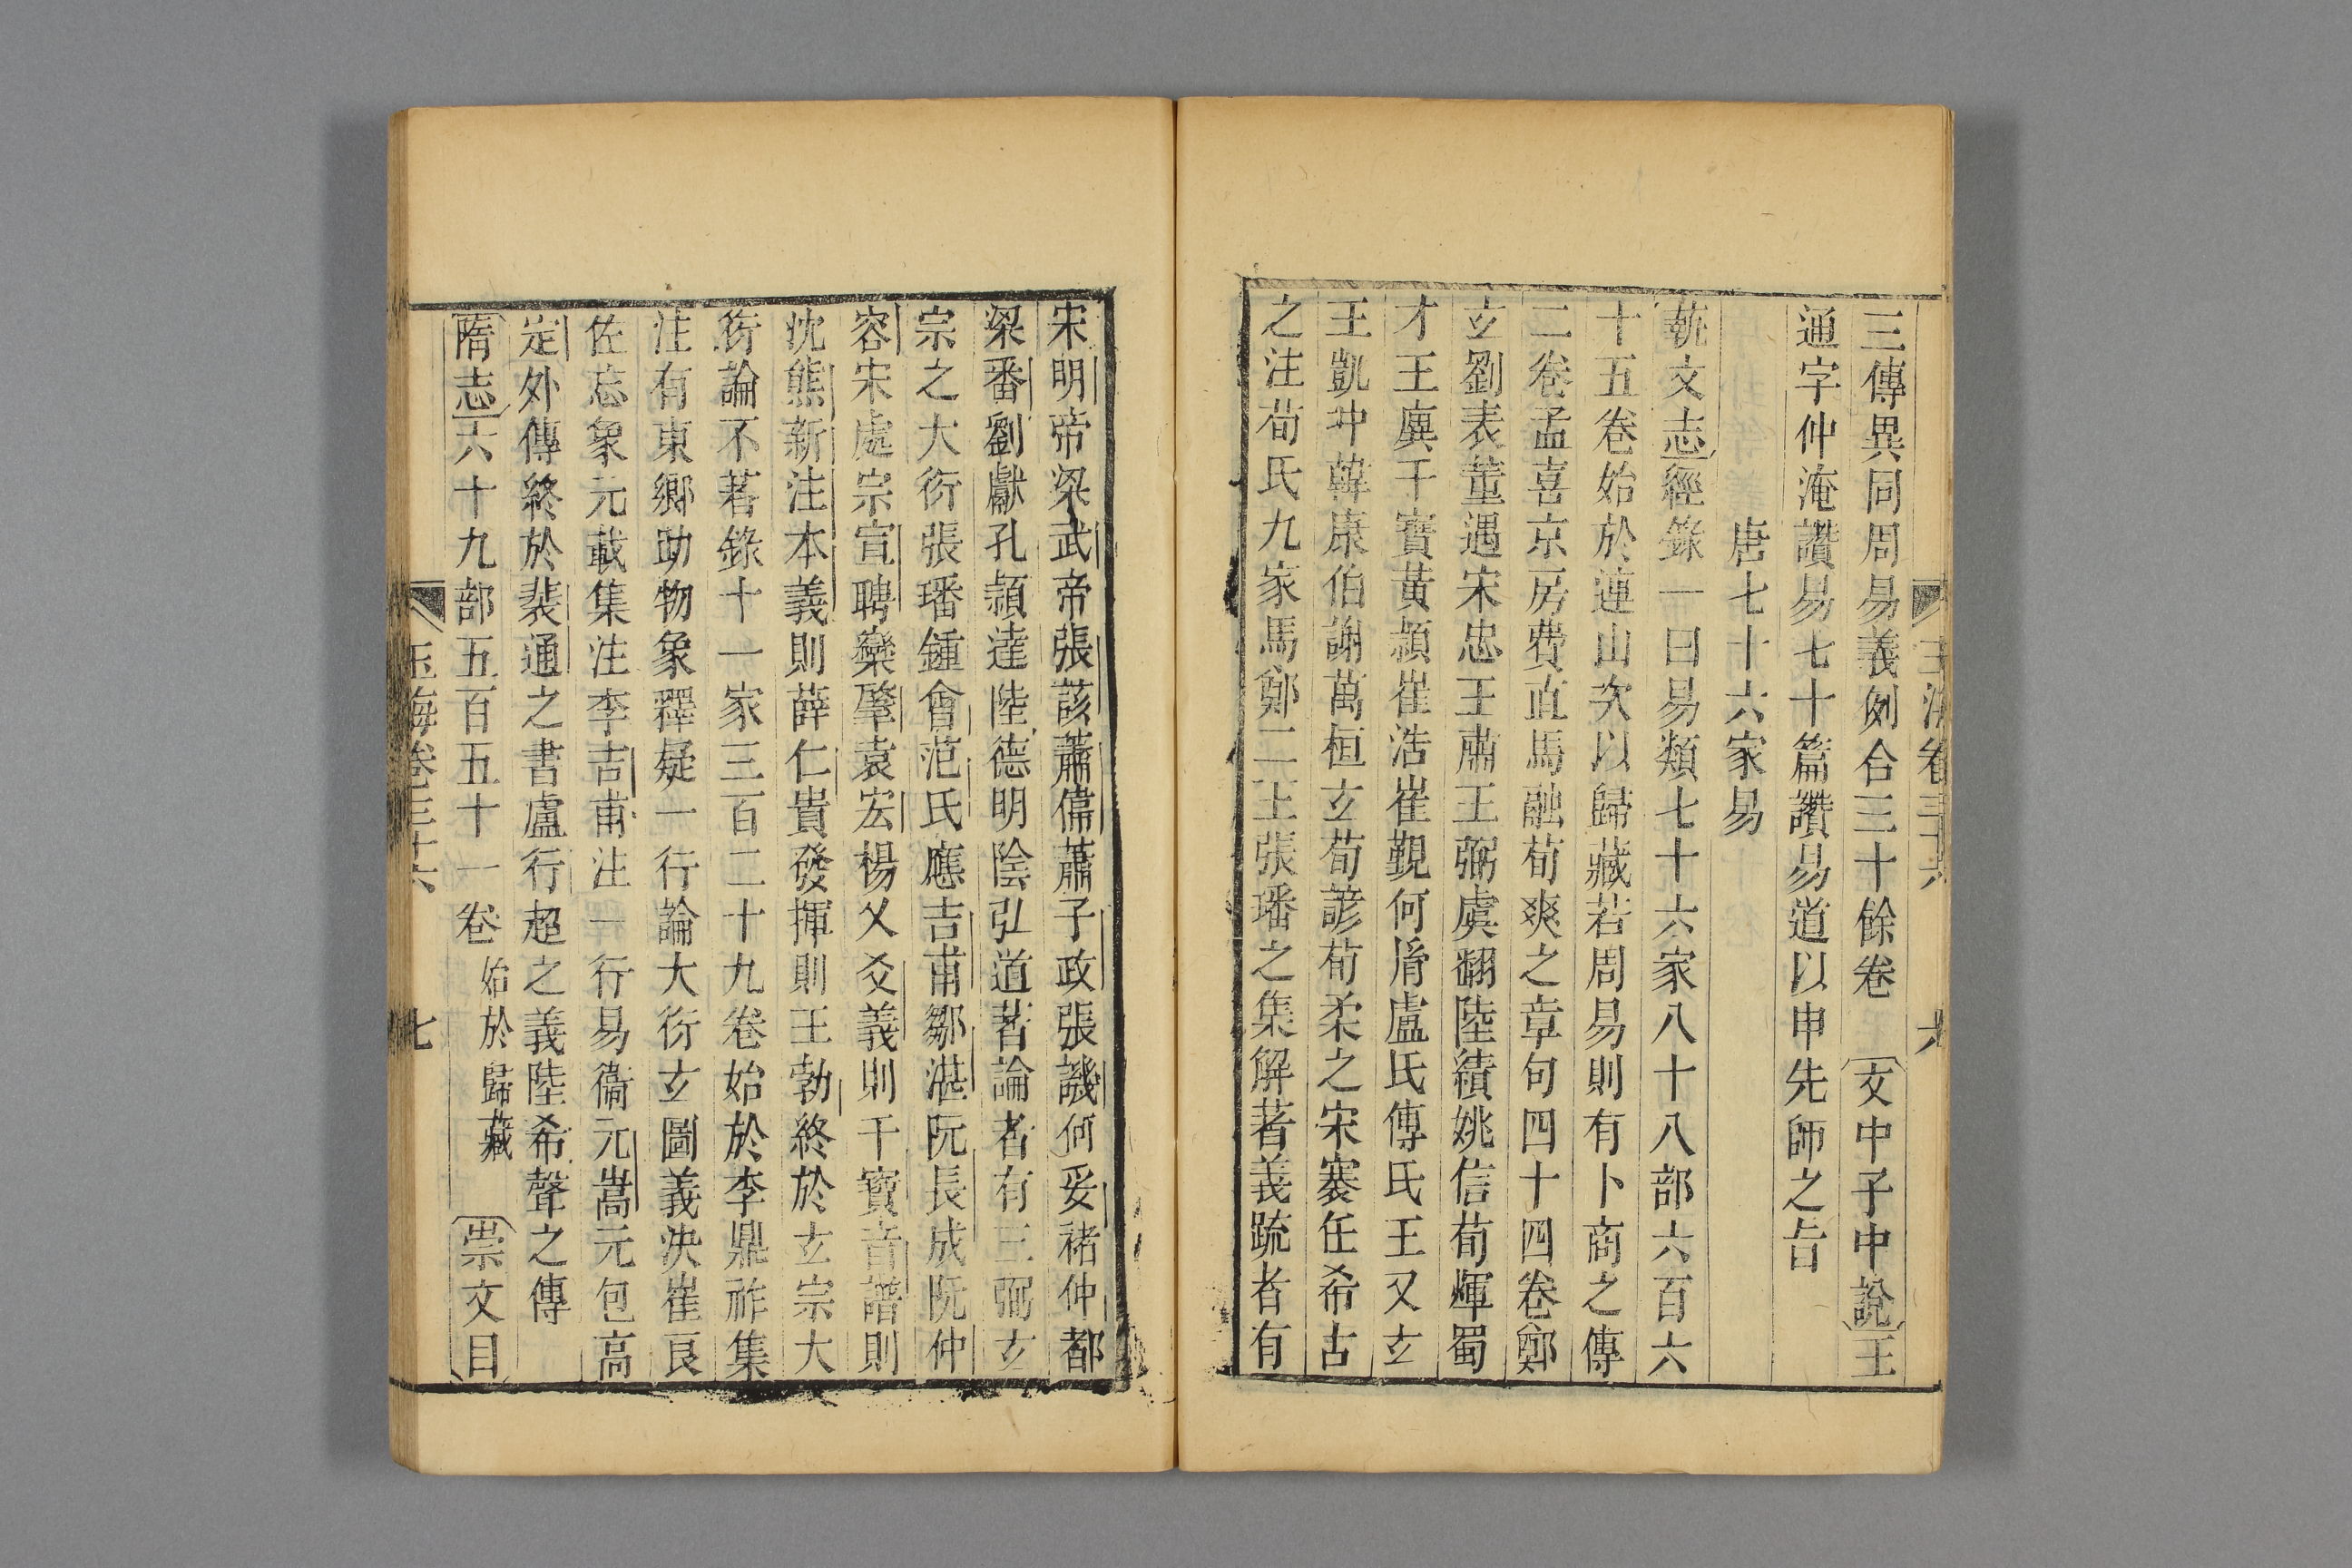 三傳異同周易義例合三十餘卷 文中子中說 王
通字仲淹讚易七十篇讚易道以申先師之旨
唐七十六家易
蓺文志 經錄一曰易類七十六家八十八部六百六
十五卷始於連山次以歸藏若周易則有卜商之傳
二卷孟喜京房費直馬融荀爽之章句四十四卷鄭
玄劉表董遇宋忠王肅王弼虞翻陸績姚信荀煇蜀
才王廙干寶黃穎崔浩崔覲何胤盧氏傅氏王又玄
王凱冲韓康伯謝萬桓玄荀諺荀柔之宋褰任希古
之注荀氏九家馬鄭二王張璠之集解著義疏者有
宋明帝梁武帝張該蕭偉蕭子政張譏何妥褚仲都
梁蕃劉獻孔穎達陸德明陰弘道著論者有三弼玄
宗之大衍張璠鍾會范氏應吉甫鄒湛阮長成阮仲
容宋處宗宣聘欒肇袁宏楊乂爻義則干寶音譜則
沈熊新注本義則薛仁貴發揮則王勃終於玄宗大
衍論不著錄十一家三百二十九卷始於李鼎祚集
注有東鄉助物象釋疑一行論大衍玄圖義決崔良
佐忘象元載集注李吉甫注一行易衞元嵩元包高
定外傳終於裴通之書盧行超之義陸希聲之傳
隋志 六十九部五百五十一卷 始於歸藏 崇文目
玉海卷三十六
七